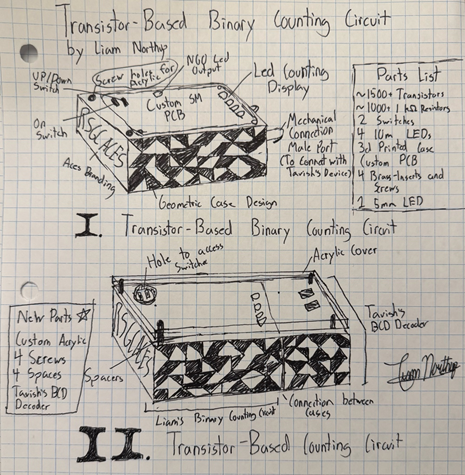 Transistor-Based Binary Counting Circuit
by Liam Northup
Screw holes for
Acrylic
NGO Led
Output
Led Counting
Display
UP/Down
Switch
On
Switch
Custom SM
PCB
ACES
Aces Branding
Mechanical
Connection
Male Port
(To Connect with
Tavish's Device)
Geometric Case Design
Parts List
~1500+ Transistors
~1000+ 1 kΩ Resistors
2 Switches
4 10m LEDs
3d Printed Case
Custom PCB
4 Brass-Inserts and
Screws
1 5mm LED
I. Transistor-Based Binary Counting Circuit
Hole to access
Switches
Acrylic Cover
New Parts
Custom Acrylic
4 Screws
4 Spaces
Tavish's BCD
Decoder
ACES
Spacers
Tavish's
BCD Decoder
Liam Northup
Liam's Binary Counting Circuit
Connection between
cases
II. Transistor-Based Counting Circuit